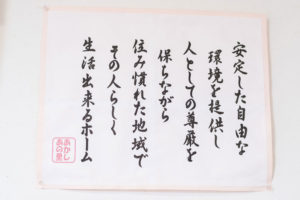 安定した自由な
環境を提供し
人としての尊厳を
保ちながら
住み慣れた地域で
その人らしく
生活出来るホーム
あかし
あの里